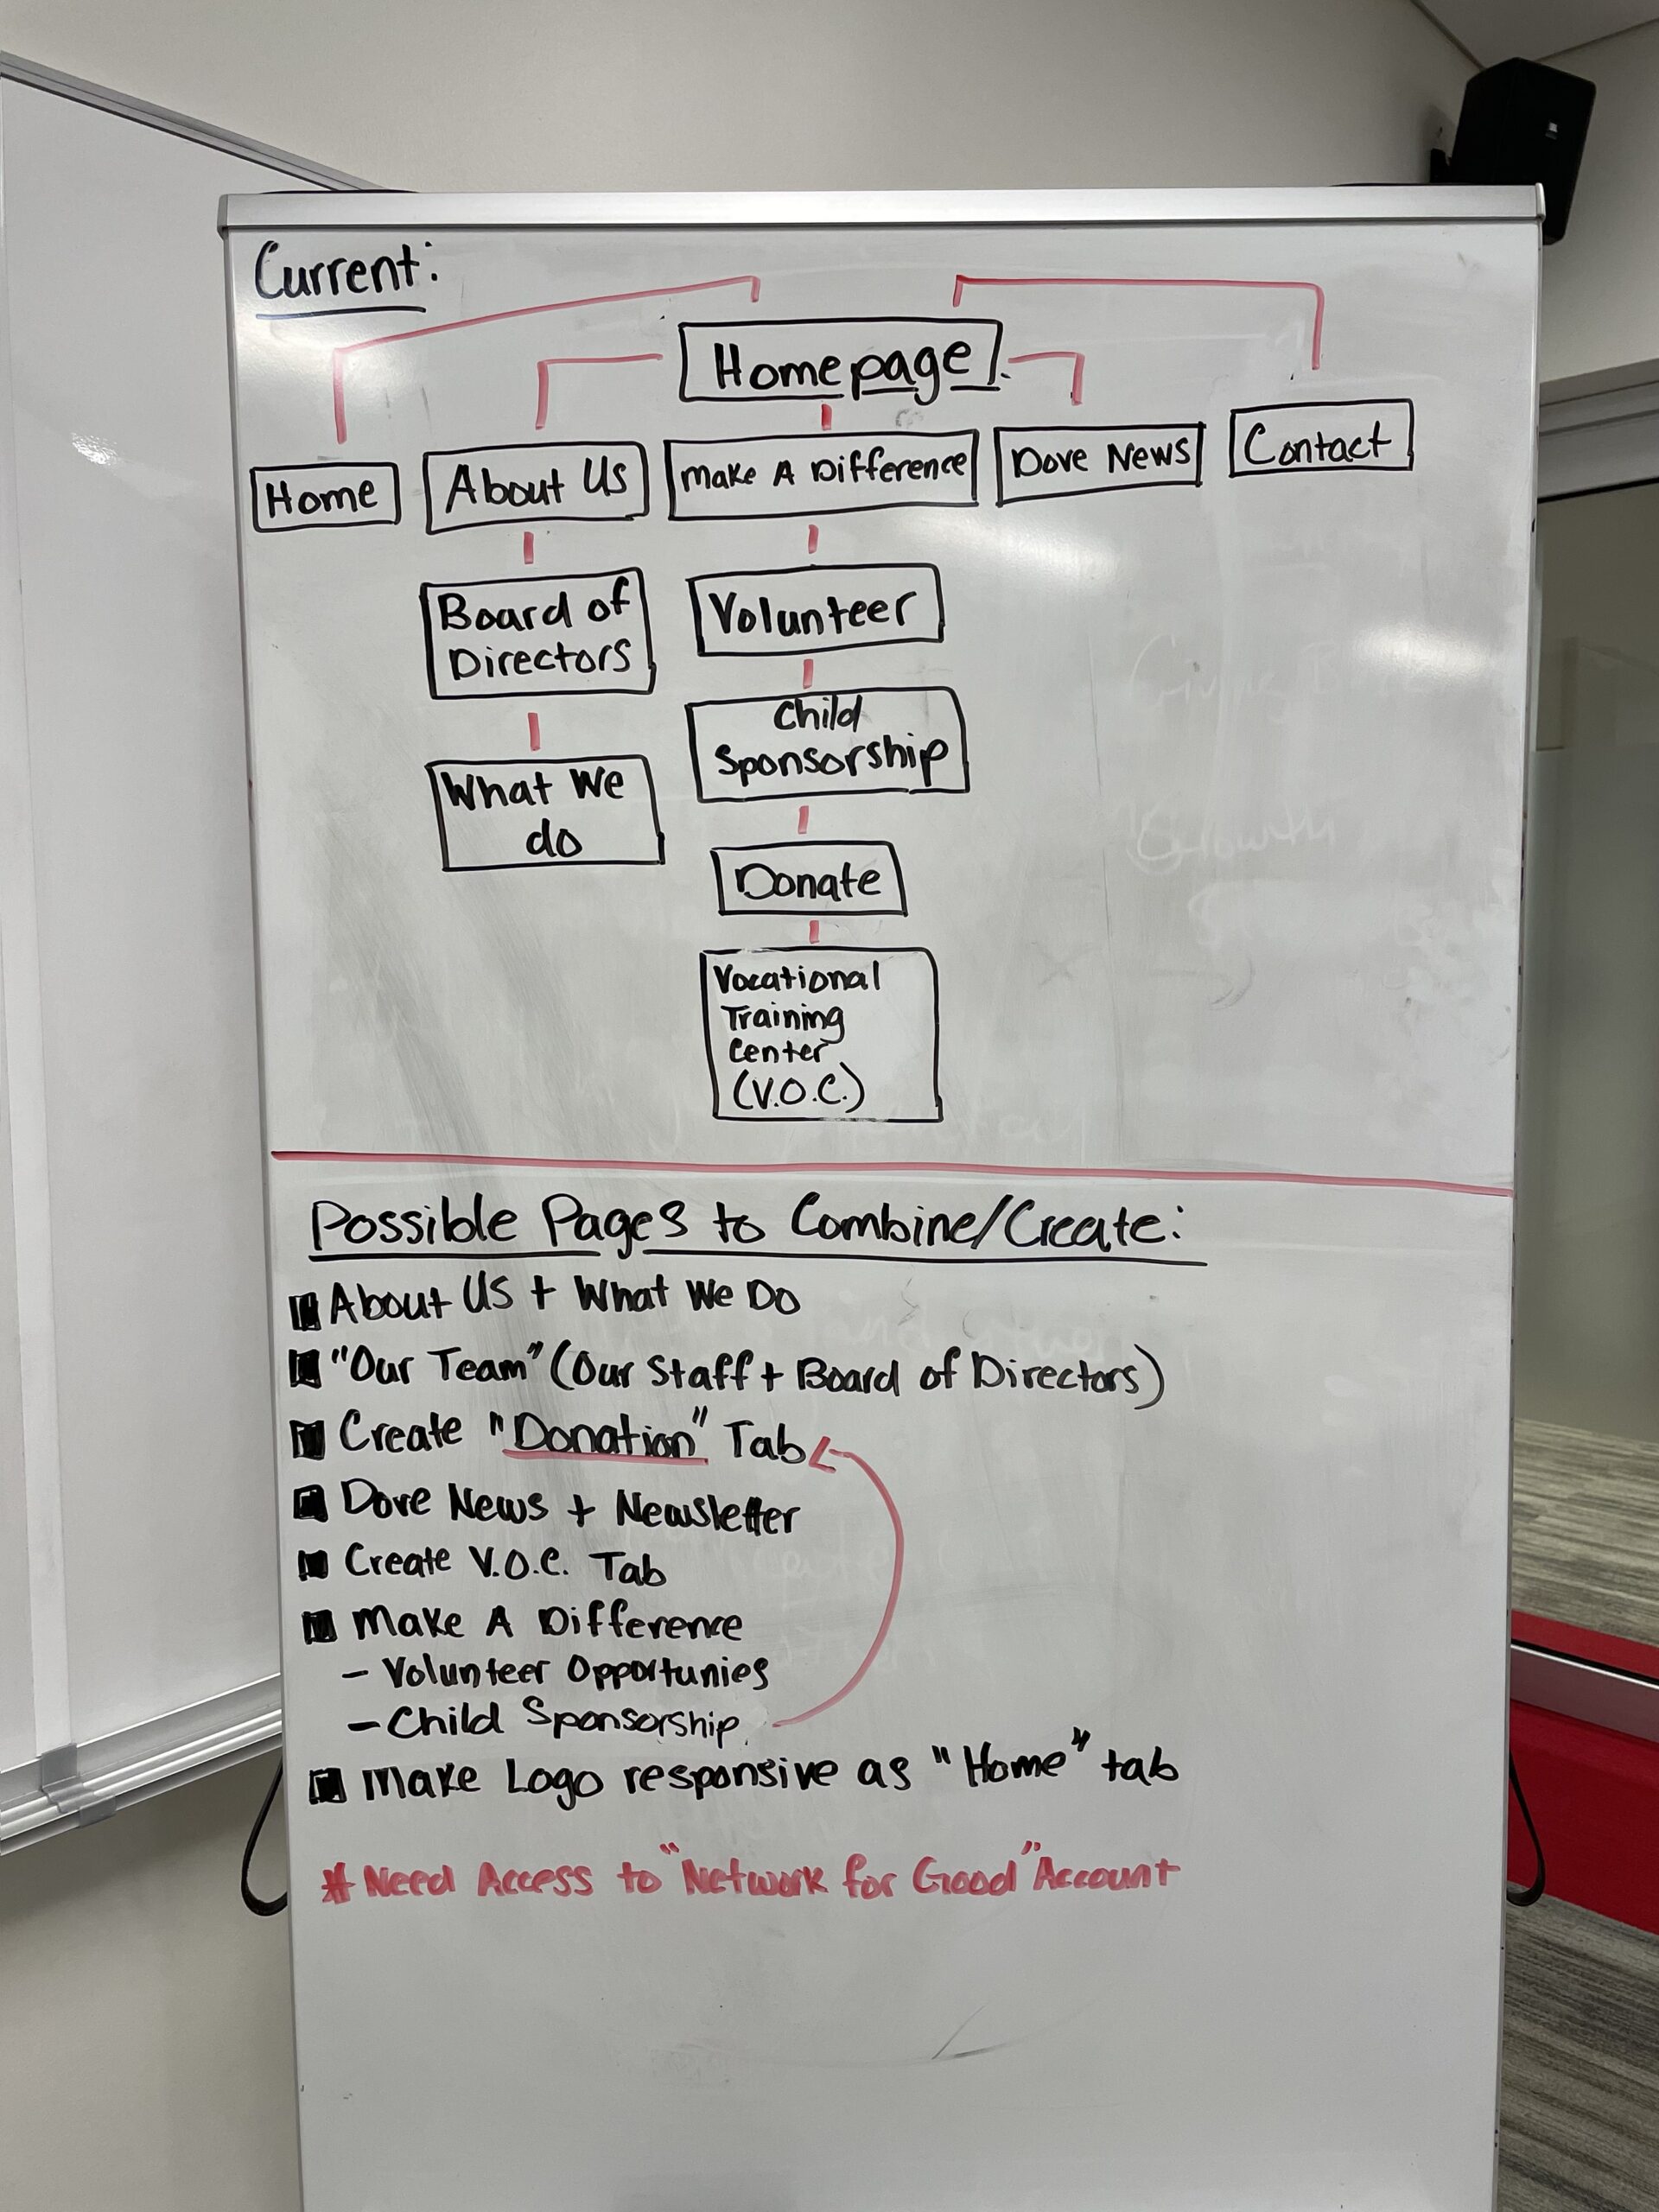 Current:
Homepage
Home
About Us
Make A Difference
Dove News
Contact
Board of
Directors
What We
do
Volunteer
Child
Sponsorship
Donate
Vocational
Training
Center
(V.O.C.)
Possible Pages to Combine/Create:
About Us + What We Do
"Our Team" (Our Staff + Board of Directors)
Create "Donation" Tab
Dove News + Newsletter
Create V.O.C. Tab
Make A Difference
- Volunteer Opportunies
- Child Sponsorship
Make Logo responsive as "Home" tab
* Need Access to "Network for Good" Account
Growth